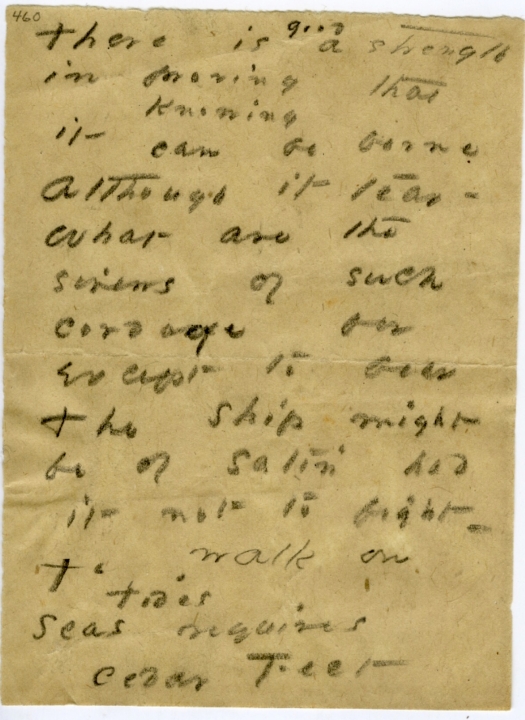 460
good
There is a strength
in proving that
Knowing
it can be borne
Although it tear -
What are the
sinews of such
cordage for
Except to bear
The ship might
be of satin had
it not to fight -
To walk on
tides
seas requires
cedar Feet